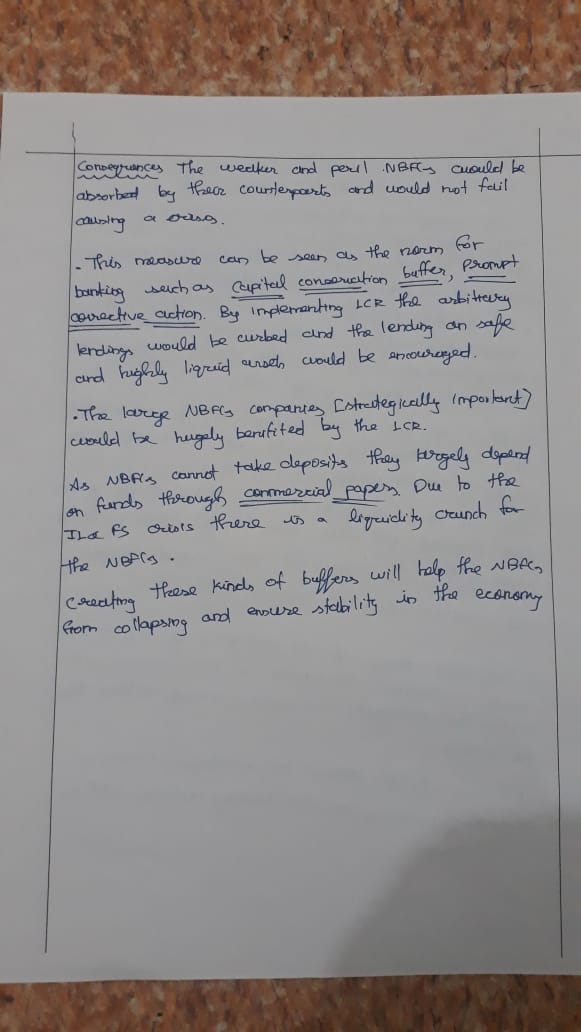 Consequences The weaker and peril NBFCs would be
absorbed by their counterparts and would not fail
causing a crisis.
- This measure can be seen as the norm for
banking such as capital conservation buffer, prompt
corrective action. By implementing LCR the arbitrary
lendings would be curbed and the lending on safe
and highly liquid assets would be encouraged.
. The large NBFCs companies [strategically important]
would be hugely benifited by the LCR.
As NBFCs cannot take deposits they largely depend
on funds through commercial papers. Due to the
IL& FS crisis there is a liquidity crunch for
the NBFCs.
Creating these kinds of buffers will help the NBFCs
from collapsing and ensure stability in the economy